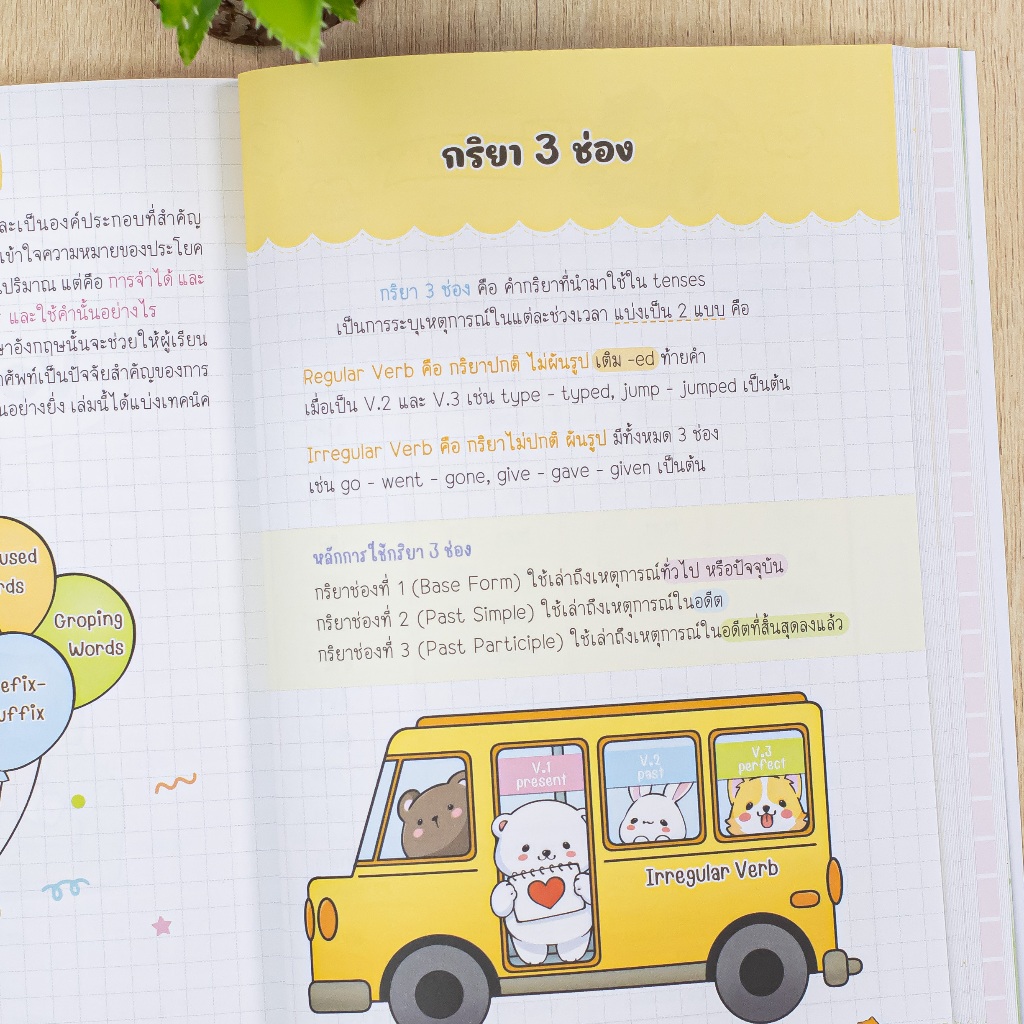 ละเป็นองค์ประกอบที่สำคัญ
เข้าใจความหมายของประโยค
ปริมาณ แต่คือ การจำได้ และ
และใช้คำนั้นอย่างไร
ษาอังกฤษนั้นจะช่วยให้ผู้เรียน
ศัพท์เป็นปัจจัยสำคัญของการ
นอย่างยิ่ง เล่มนี้ได้แบ่งเทคนิค
used
rds
Groping
Words
efix-
uffix
กริยา 3 ช่อง
กริยา 3 ช่อง คือ คำกริยาที่นำมาใช้ใน tenses
เป็นการระบุเหตุการณ์ในแต่ละช่วงเวลา แบ่งเป็น 2 แบบ คือ
Regular Verb คือ กริยาปกติ ไม่ผันรูป เติม -ed ท้ายคำ
เมื่อเป็น V.2 และ V.3 เช่น type - typed, jump - jumped เป็นต้น
Irregular Verb คือ กริยาไม่ปกติ ผันรูป มีทั้งหมด 3 ช่อง
เช่น go - went - gone, give - gave - given เป็นต้น
หลักการใช้กริยา 3 ช่อง
กริยาช่องที่ 1 (Base Form) ใช้เล่าถึงเหตุการณ์ทั่วไป หรือปัจจุบัน
กริยาช่องที่ 2 (Past Simple) ใช้เล่าถึงเหตุการณ์ในอดีต
กริยาช่องที่ 3 (Past Participle) ใช้เล่าถึงเหตุการณ์ในอดีตที่สิ้นสุดลงแล้ว
V.1
present
V.2
past
V.3
perfect
Irregular Verb